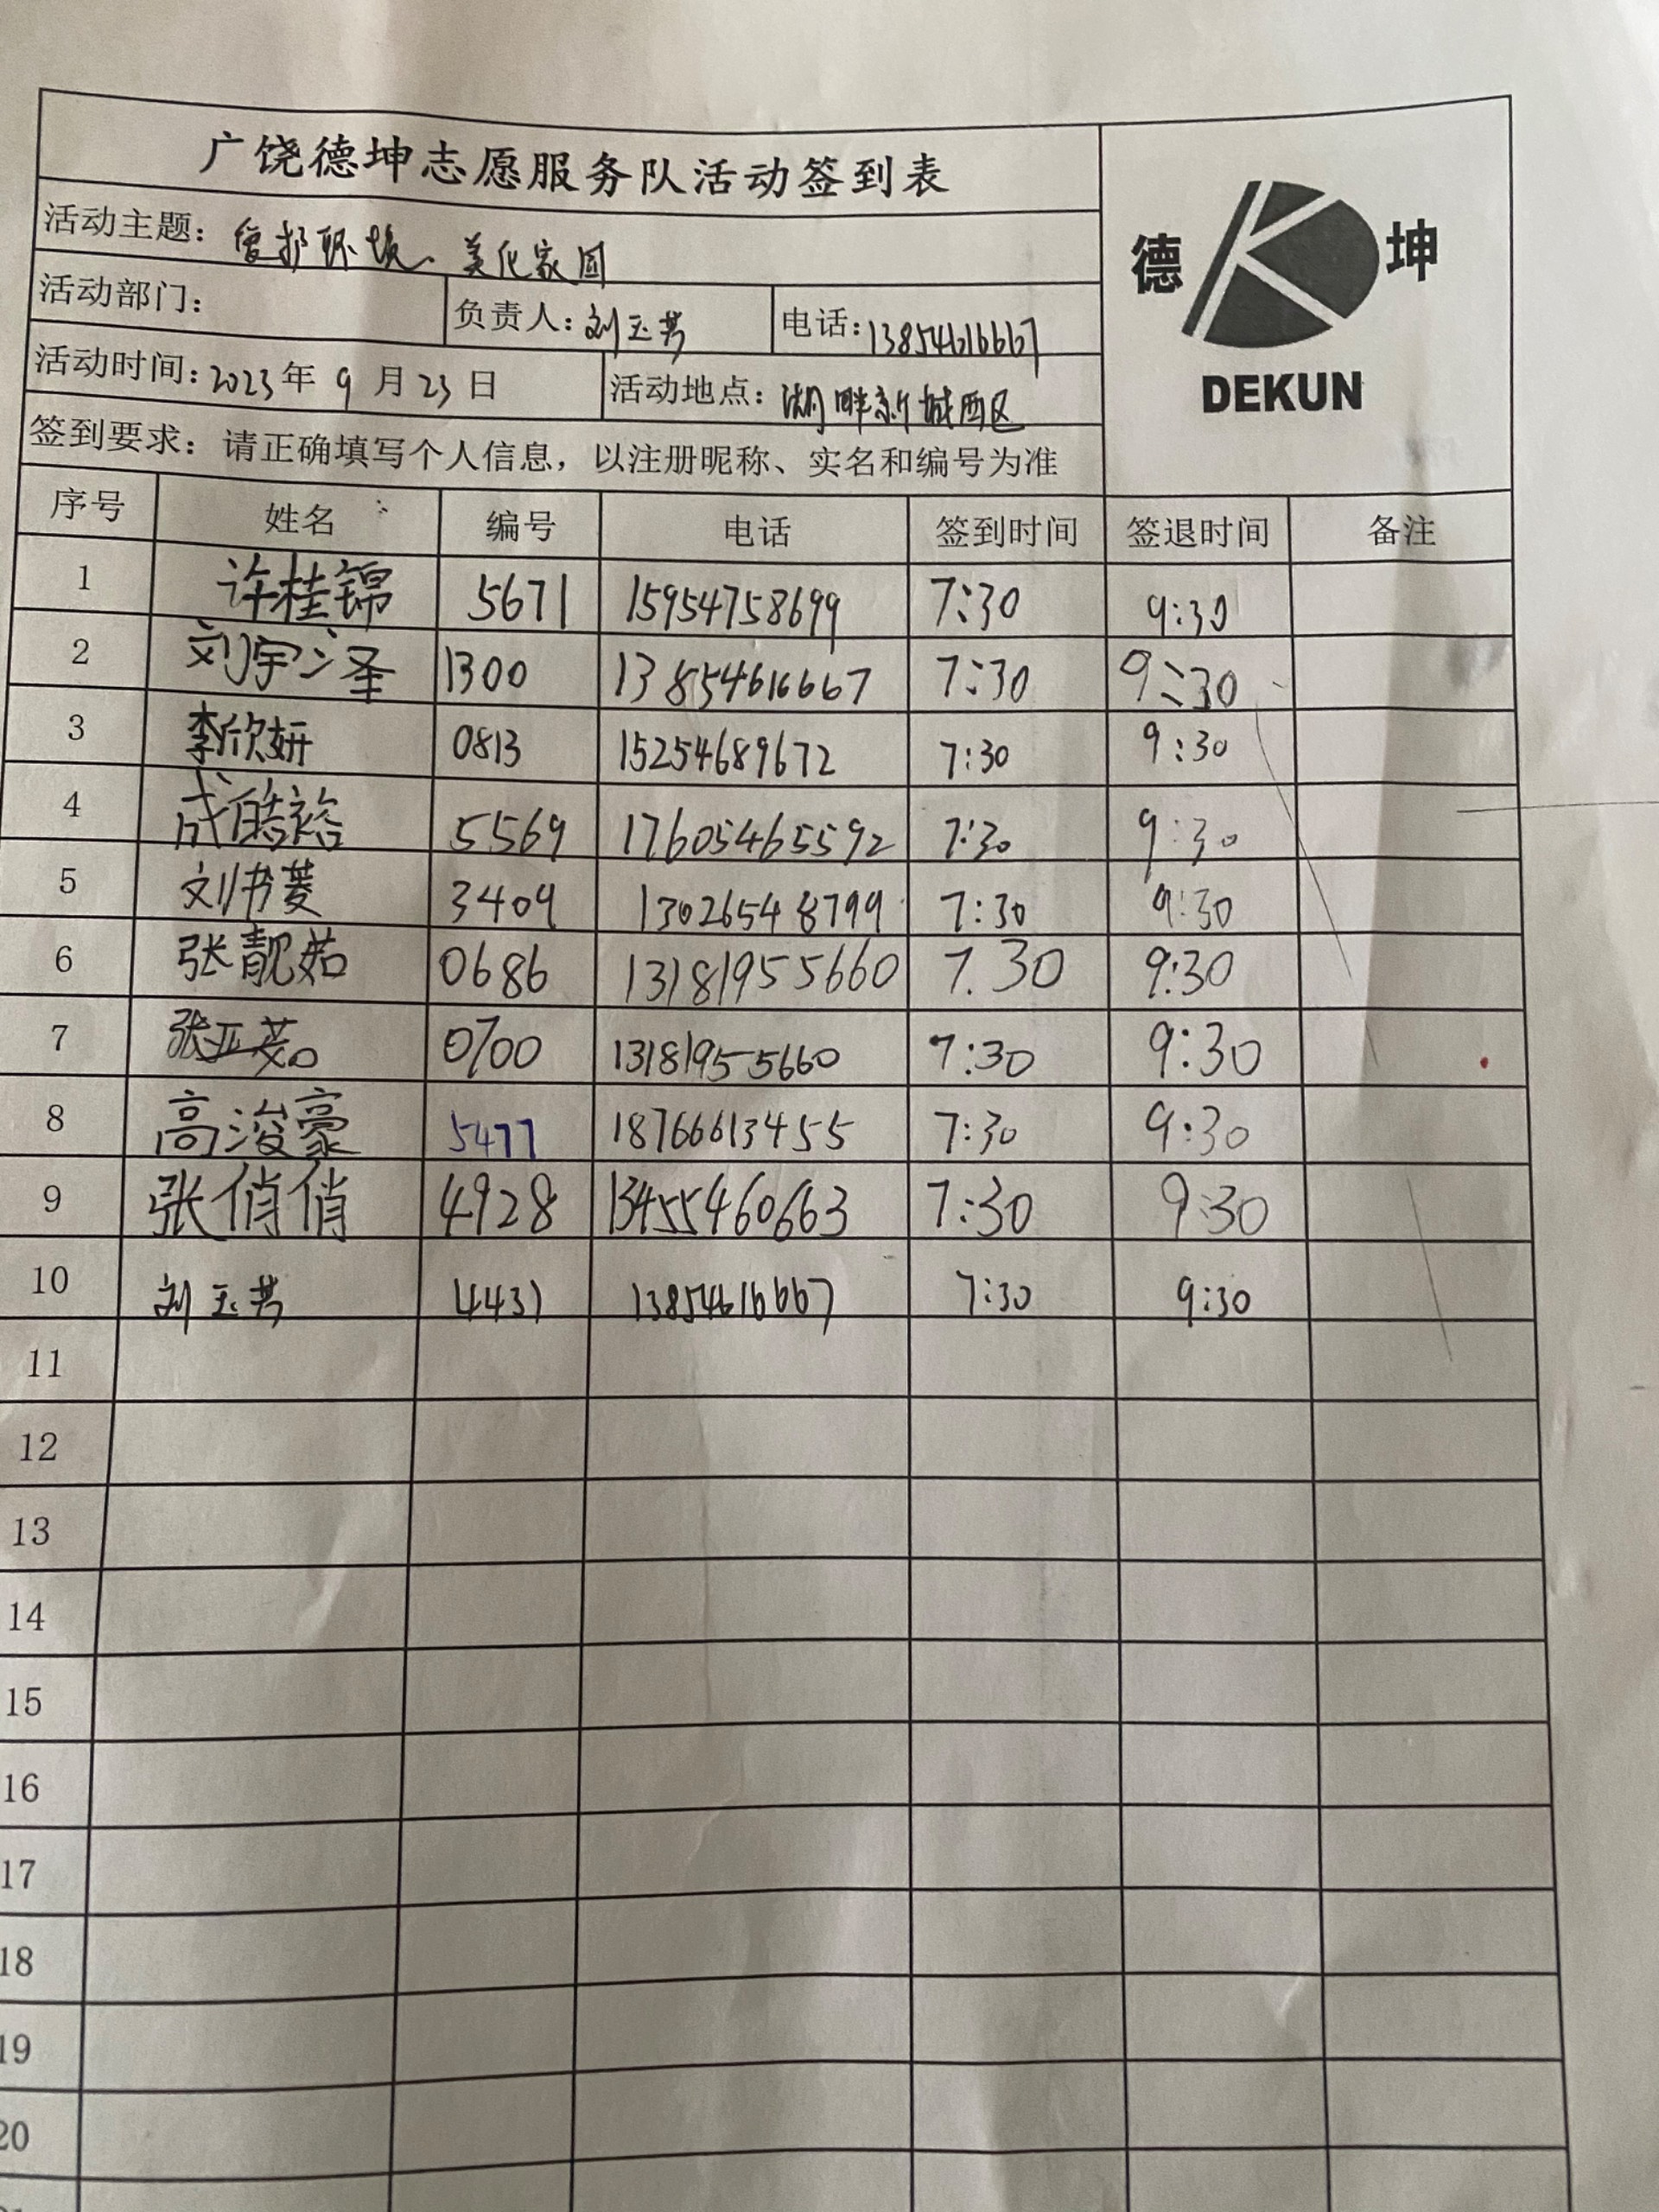 广饶德坤志愿服务队活动签到表
德 坤
DEKUN
活动主题：爱护环境、美化家园
活动部门： 负责人：刘玉芳 电话：13854616667
活动时间：2023年9月23日 活动地点：湖畔新城西区
签到要求：请正确填写个人信息，以注册昵称、实名和编号为准
序号 姓名 编号 电话 签到时间 签退时间 备注
1 许桂锦 5671 15954758699 7:30 9:30
2 刘宇泽 1300 13854616667 7:30 9:30
3 李欣妍 0813 15254689672 7:30 9:30
4 成皓裕 5569 17605465592 7:30 9:30
5 刘书菱 3409 13026548799 7:30 9:30
6 张靓茹 0686 13181955660 7.30 9:30
7 张亚茹 0700 13181955660 7:30 9:30
8 高浚豪 5477 18766613455 7:30 9:30
9 张俏俏 4928 13455460663 7:30 9:30
10 刘玉芳 4431 13854616667 7:30 9:30
11
12
13
14
15
16
17
18
19
20